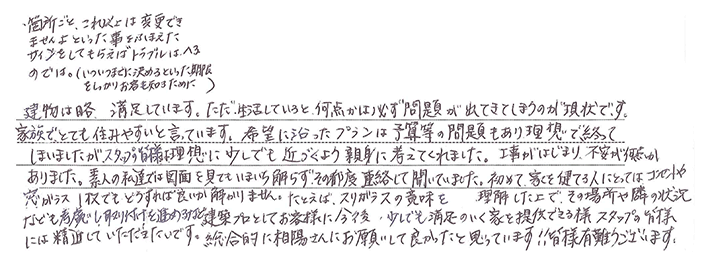 ・箇所ごと、これ以上は変更でき
ませんよといった事をふまえた
サインをしてもらえばトラブルは、へる
のでは。(いついつまでに決めるといった期限
をしっかりお客も知るために)
建物は略、満足しています。ただ、生活していると、何点かは必ず問題が出てきてしまうのが現状です。
家族でとても住みやすいと言っています。希望に沿ったプランは予算等の問題もあり理想で終って
しまいましたがスタッフの皆様は理想に少しでも近づくよう親身に考えてくれました。工事がはじまり、不安が何点か
ありました。素人の私達では図面を見てもいまいち解らずその都度連絡して聞いていました。初めて家を健てる人にとってはコンセントや
窓ガラス1枚でもどうすれば良いか解かりません。たとえば、スリガラスの意味を 理解した上で、その場所や隣の状況
なども考慮し 建築プロとしてお客様に今後、少しでも満足のいく家を提供できる様スタッフの皆様
には精進していただきたいです。総合的に相陽さんにお願いして良かったと思っています!!皆様有難うございます。